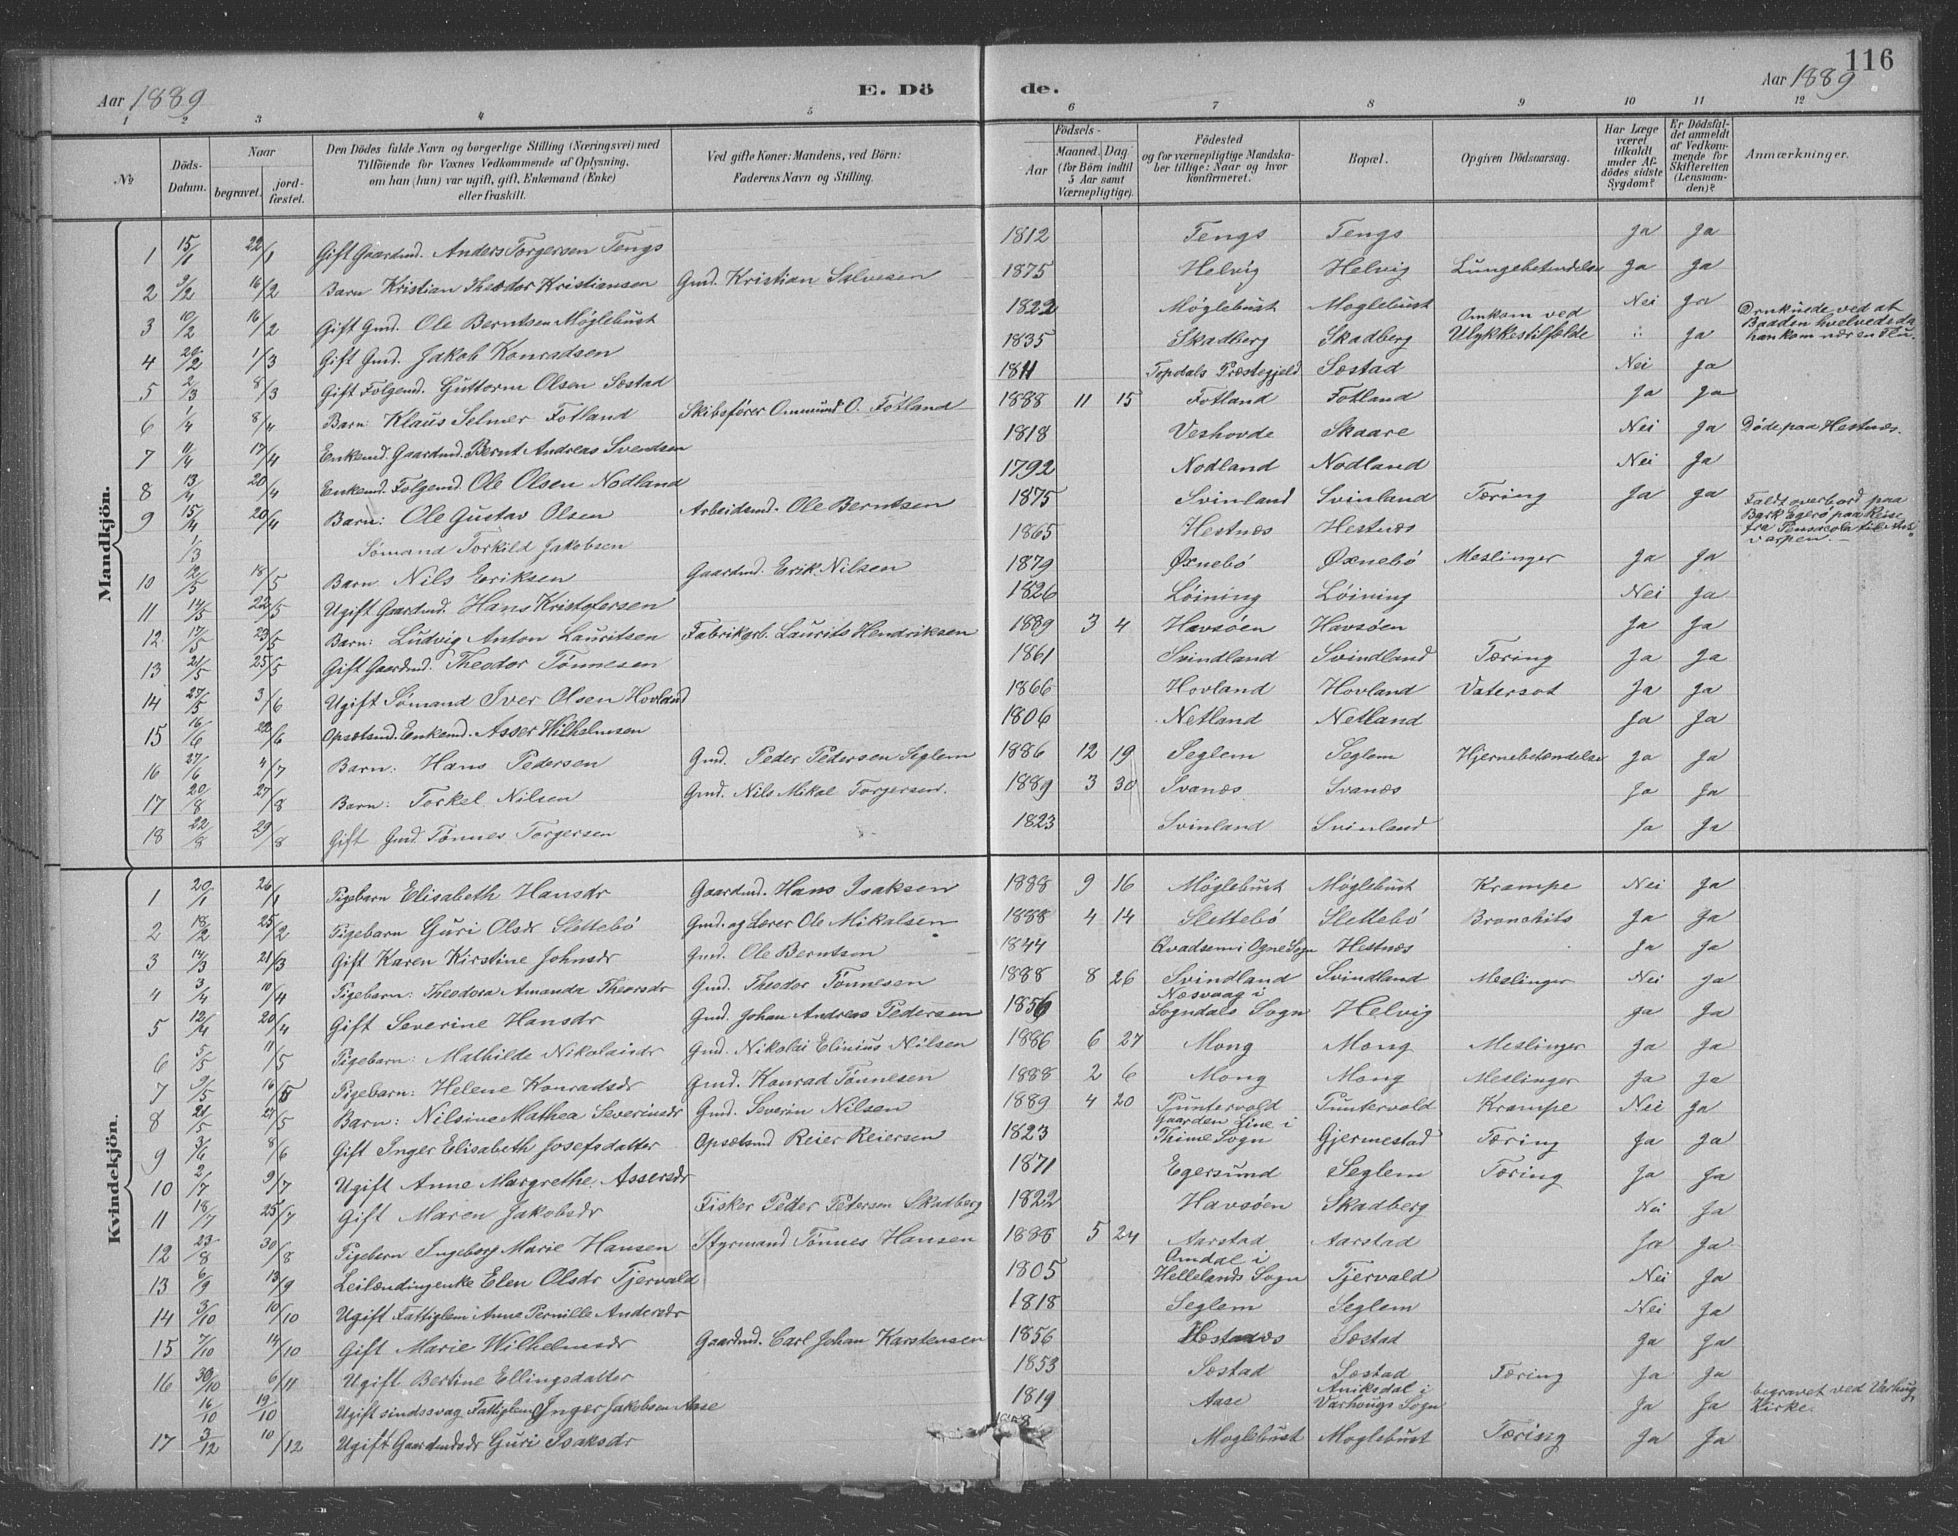 116
Aar 1889 E. Dö de. Aar 1889
1 2 3 4 5 6 7 8 9 10 11 12
№ Döds-Datum. Naar begravet. jord-fæstet. Den Dödes fulde Navn og borgerlige Stilling (Næringsvei) med Tilföiende for Voxnes Vedkommende af Oplysning, om han (hun) var ugift, gift, Enkemand (Enke) eller fraskilt. Ved gifte Koner: Mandens, ved Börn: Faderens Navn og Stilling. Födsels- Aar Maaned. Dag (for Börn indtil 5 Aar samt Værnepligtige). Födested og for værnepligtige Mandskaber tillige: Naar og hvor konfirmeret. Bopæl. Opgiven Dödsaarsag. Har Læge været tilkaldt under Afdödes sidste Sygdom? Er Dödsfaldet anmeldt af Vedkommende for Skifteretten (Lensmanden)? Anmærkninger.
Mandkjön.
1 15/1 22/1 Gift Gaardmd. Anders Torgersen Tengs 1812 Tengs Tengs Ja Ja
2 9/2 16/2 Barn Kristian Theodor Kristiansen Gmd. Kristian Salvesen 1875 Helvig Helvig Lungebetændelse Ja Ja
3 10/2 16/2 Gift Gmd. Ole Berntsen Møglebust 1822 Møglebust Moglebust Nei Ja
4 20/2 1/3 Gift Gmd. Jakob Konradsen 1835 Skadberg Skadberg Omkom ved Ulykkestilfælde : Ja Druknede ved at Baaden hvelvede da han kom nær en Flu.
5 2/3 8/3 Gift Følgemd. Guttorm Olsen Sæstad 1811 Topdals Præstegjeld Sæstad Nei Ja
6 1/4 8/4 Barn: Klaus Selmer Fotland Skibsfører Ommund O. Fotland 1888 11 15 Fotland Fotland Ja Ja
7 11/4 17/4 Enkemd. Gaardmd. Bernt Andreas Svendsen 1818 Veshovde Skaare Nei Ja Døde paa Hestnæs.
8 13/4 20/4 Enkemd. Følgemd. Ole Olsen Nodland 1792 Nodland Nodland Nei Ja
9 15/4 20/4 Barn: Ole Gustav Olsen Arbeidsmd. Ole Berntsen 1875 Svinland Svinland Tæring Ja Ja
1/3 Sømand Torkild Jakobsen 1865 Hestnæs Hestnæs Faldt overbord paa Bark Egerø paa Reise fra Pensacola til Antverpen. —
10 12/5 18/5 Barn Nils Eriksen Gaardmd. Erik Nilsen 1879 Øxnebø Øxnebø Meslinger Ja Ja
11 14/5 22/5 Ugift Gaardmd. Hans Kristofersen 1826 Løining Løining Nei Ja
12. 17/5 23/5 Barn: Ludvig Anton Lauritsen Fabrikarb. Laurits Hendriksen 1889 3 4 Havsøen Havsøen Ja Ja
13 21/5 25/5 Gift Gaardmd. Theodor Tønnesen 1861 Svindland Svindland Tæring Ja Ja
14 27/5 3/6 Ugift Sømand Iver Olsen Hovland 1866 Hovland Hovland Vatersot Ja Ja
15 16/6 22/6 Opsætsmd. Enkemd. Asser Wilhelmsen 1806 Netland Netland Ja Ja
16 27/6 4/7 Barn: Hans Pedersen Gmd. Peder Pedersen Seglem 1886 12 19 Seglem Seglem Hjernebetændelse Ja Ja
17 20/8 27/8 Barn: Torkel Nilsen Gmd. Nils Mikal Torgersen. 1889 3 30 Svanæs Svanæs Ja Ja
18 22/8 29/8 Gift Gmd. Tønnes Torgersen 1823 Svinland Svinland Ja Ja
Kvindekjön.
1 20/1 26/1 Pigebarn Elisabeth Hansdr Gaardmd. Hans Isaksen 1888 9 16 Møglebust Møglebust Krampe Nei Ja
2 18/2 25/2 Pigebarn Guri Olsdr Slettebø Gmd. og Lærer Ole Mikalsen 1888 4 14 Slettebø Slettebø Bronchits Ja Ja
3 14/3 21/3 Gift Karen Kirstine Johnsdr Gmd. Ole Berntsen 1844 Qvadsem i Ogne Sogn Hestnæs Ja Ja
4 3/4 10/4 Pigebarn: Theodora Amanda Theorsdr Gmd. Theodor Tønnesen 1888 8 26 Svindland Svindland Meslinger Nei Ja
5 12/4 20/4 Gift Severine Hansdr Gmd. Johan Andreas Pedersen 1856 Næsvaag i Sogndals Sogn Helvig Ja Ja
6 5/5 11/5 Pigebarn: Mathilde Nikolaisdr Gmd. Nikolai Elinius Nilsen 1886 6 27 Mong Mong Meslinger Ja Ja
7 9/5 16/5 Pigebarn: Helene Konradsdr Gmd. Konrad Tønnesen 1888 2 6 Mong Mong Meslinger Ja Ja
8 21/5 27/5 Barn: Nilsine Mathea Severinsdr Gmd. Severin Nilsen 1889 4 20 Puntervold Puntervold Krampe Nei Ja
9 3/6 8/6 Gift Inger Elisabeth Josefsdatter Opsætsmd Reier Reiersen 1823 Gaarden Line i Thime Sogn Gjermestad Tæring Ja Ja
10 2/7 9/7 Ugift Anne Margrethe Assersdr 1871 Egersund Seglem Tæring Ja Ja
11 18/7 25/7 Gift Maren Jakobsdr Fisker Peder Petersen Skadberg 1822 Havsøen Skadberg Nei Ja
12 23/8 30/8 Pigebarn Ingeborg Marie Hansen Styrmand Tønnes Hansen 1888 5 24 Aarstad Aarstad Ja Ja
13 6/9 13/9 Leilændingenke Elen Olsdr Tjervald 1805 Omdal i Hellelands Sogn Tjervald Nei Ja
14 3/10 10/10 Ugift Fattiglem Anne Pernille Andersdr 1818 Seglem Seglem Nei Ja
15 7/10 14/10 Gift Marie Wilhelmsdr Gaardmd. Carl Johan Karstensen 1856 Hestnæs Sæstad Ja Ja
16 30/10 6/11 Ugift Bertine Ellingsdatter 1853 Sæstad Sæstad Tæring Ja Ja
16/10 19/10 Ugift sindssvag Fattiglem Inger Jakobsen Aase 1819 Aase Aniksdal i Varhougs Sogn Ja Ja begravet ved Varhug Kirke.
17 3/12 10/12 Ugift Gaardmdsdr Guri Isaksdr Moglebust Moglebust Tæring Ja Ja